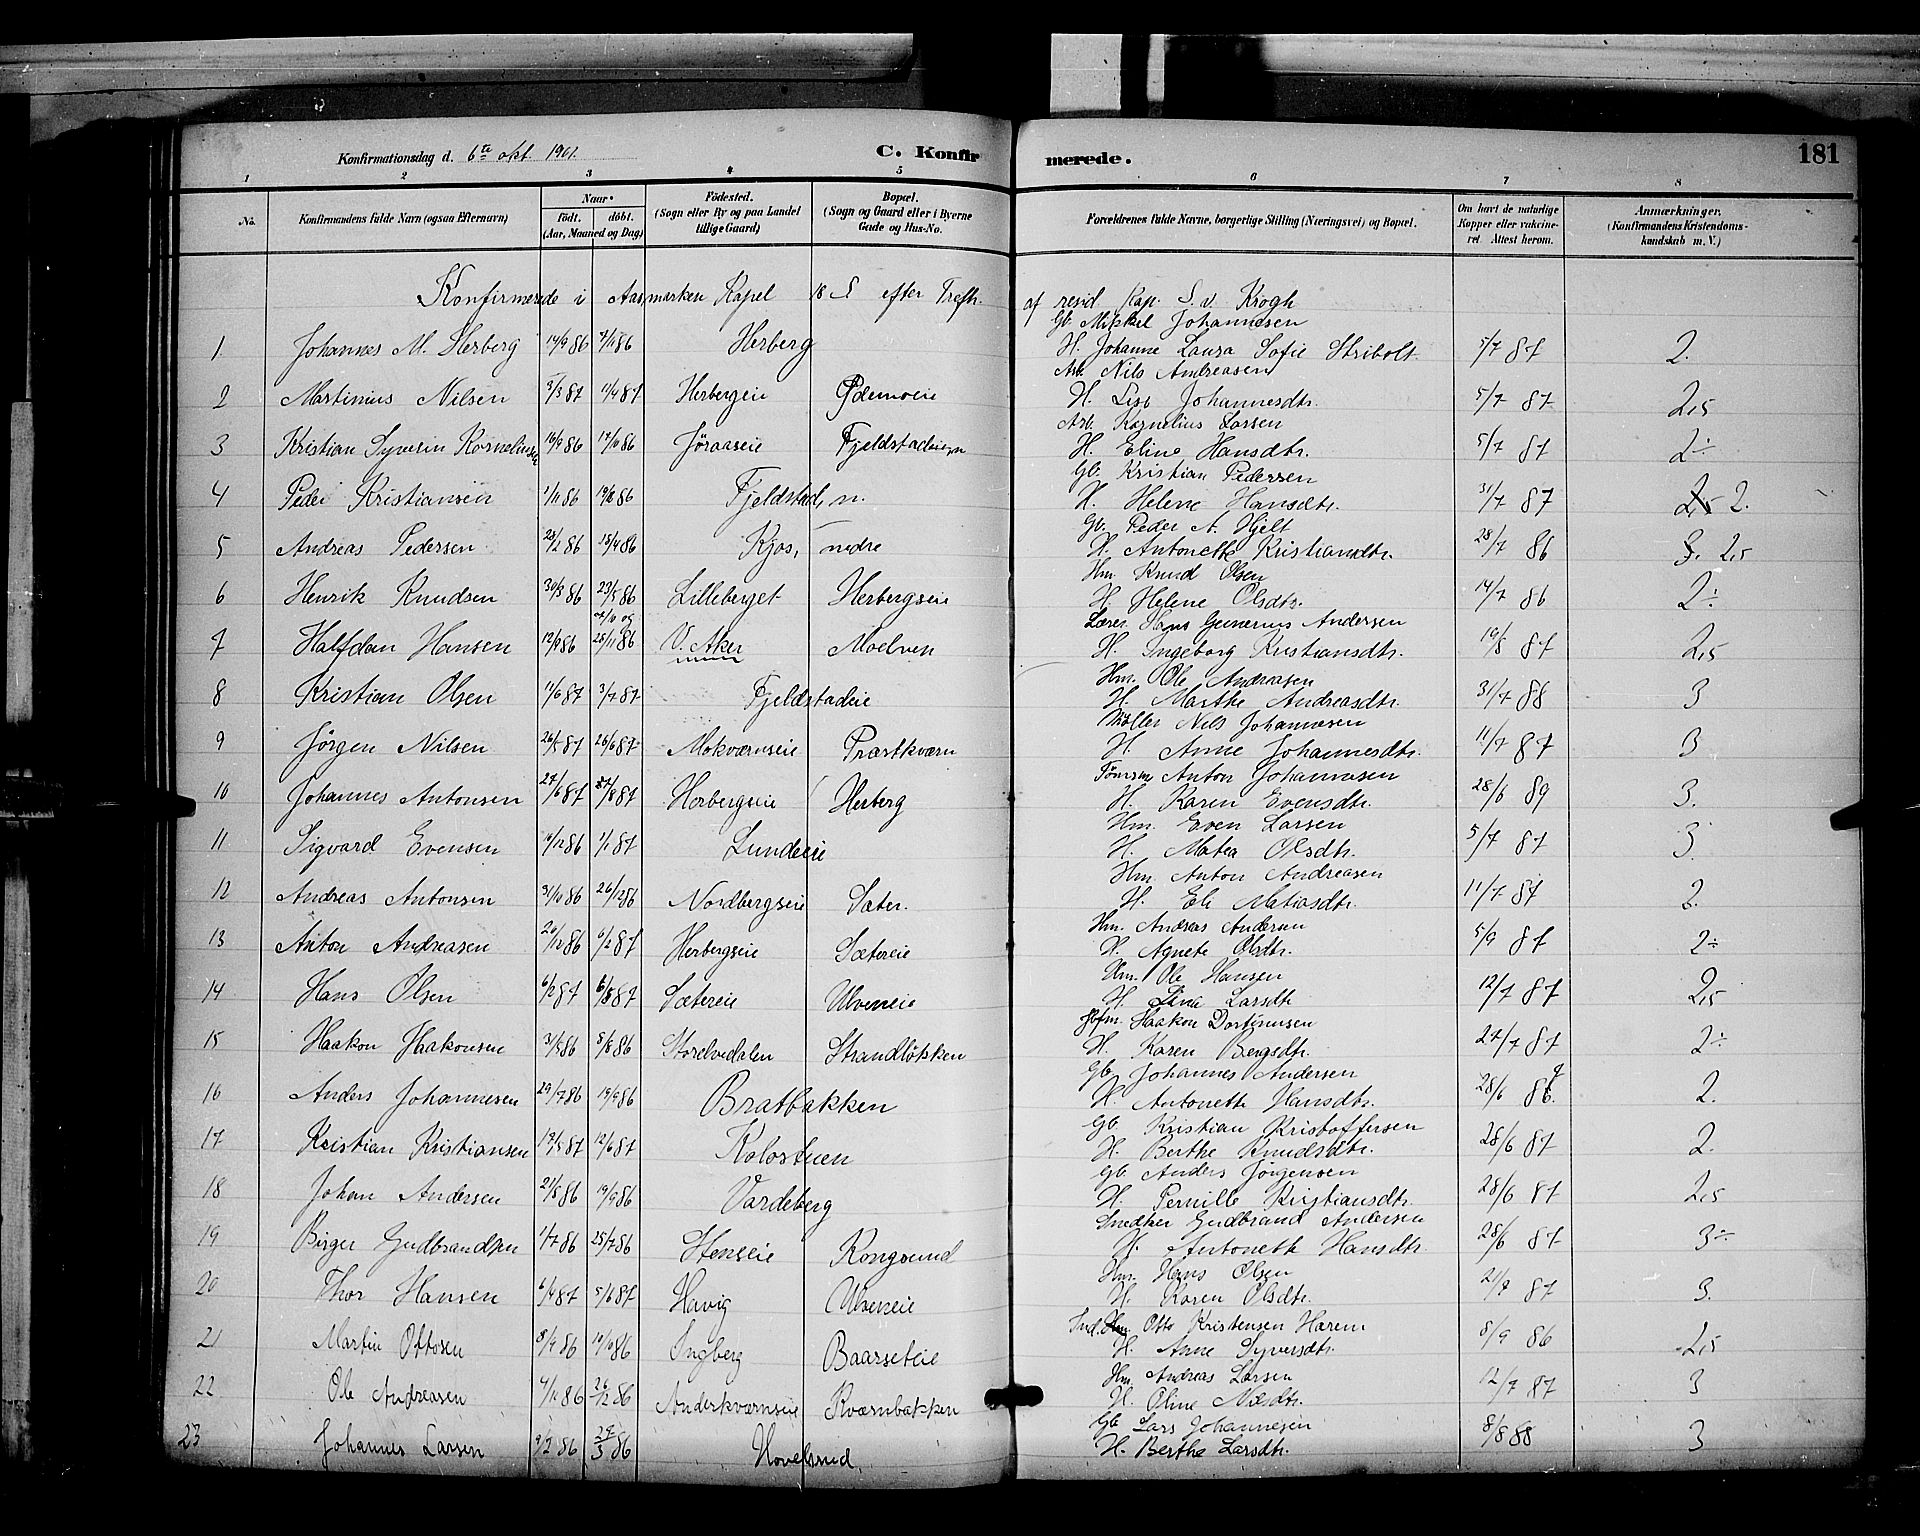 Konfirmationsdag d. 6te okt. 1901. C. Konfirmerede. 181
1 2 3 4 5 6 7 8
No. Konfirmandens fulde Navn (ogsaa Efternavn) Naar födt. döbt. (Aar, Maaned og Dag) Födested. (Sogn eller By og paa Landet tillige Gaard) Bopæl. (Sogn og Gaard eller i Byerne Gade og Hus-No. Forældrenes fulde Navne, borgerlige Stilling (Næringsvei) og Bopæl. Om havt de naturlige Kopper eller vakcineret. Attest herom. Anmærkninger. (Konfirmandens Kristendomskundskab m. V.)
Konfirmerede i Aasmarken Kapel 18 S. efter Trefh. af resid Kap. S. v. Krogh
Gb. Mikkel Johannesen
1 Johannes M. Herberg 14/9 86 /11 86 Herberg H. Johanne Laura Sofie Stribolt 5/7 87 2.
Arb. Nils Andreasen
2 Martinius Nilsen 3/3 87 11/4 87 Herbergeie Ödemoeie H. Lise Johannesdtr. 5/7 87 2,5
Arb. Kornelius Larsen
3 Kristian Syversin Korneliussen 16/9 86 17/10 86 Jöraaseie Fjeldstadeie, n H. Eline Hansdtr. 5/7 87 2÷
Gb. Kristian Pedersen
4 Peder Kristiansen 1/11 86 86 Fjeldstad, n. H. Helene Hansdtr. 31/7 87 2,5 2.
Gb. Peder A. Hjelt
5 Andreas Pedersen 28/2 86 18/4 86 Kjos, nedre H. Antonette Kristiansdtr. 28/7 86 3. 2,5
Hm. Knud Olsen
6 Henrik Knudsen 30/3 86 23/5 86 Lilleberget Herbergseie H. Helene Olsdtr. 14/7 86 2÷
Lærer Hans Gunerius Andersen
7 Halfdan Hansen 12/9 86 /10 og 28/11 86 V. Aker Moelven H. Ingeborg Kristiansdtr. 19/8 87 2,5
Hm. Ole Andreasen
8 Kristian Olsen 11/6 87 3/7 87 Fjeldstadeie H. Marthe Andreasdtr. 31/7 88 3
Möller Nils Johannesen
9 Jörgen Nilsen 26/5 87 26/6 87 Mokværnseie Præstkværn H. Anne Johannesdtr. 11/7 87 3
Tömrm Anton Johannesen
10 Johannes Antonsen 27/6 87 /8 87 Herbergseie Herberg H. Karen Evensdtr. 28/6 89 3.
Hm. Even Larsen
11 Sigvard Evensen /12 86 1/1 87 Lundeeie H. Matea Olsdtr. 5/7 87 3.
Hm. Anton Andreasen
12 Andreas Antonsen 31/10 86 26/12 86 Nordbergseie Sæter. H. Eli Matiasdtr. 11/7 87 2.
Hm. Andreas Andersen
13 Anton Andreasen 20/12 86 6/2 87 Herbergseie Sætereie H. Agnete Olsdtr. 5/9 87 2÷
Hm. Ole Hansen
14 Hans Olsen 6/2 87 6/3 87 Sætereie Ulveneie H. Lina Larsdtr 12/7 87 2,5
Haakon Dortinusen
15 Haakon Haakonsen 31/5 86 8/8 86 Storelvedalen Strandlökken H. Karen Bergsdtr. 27/7 87 2÷
Gb. Johannes Andersen
16 Anders Johannesen 29/7 86 19/9 86 Bratbakken H. Antonette Hansdtr. 28/6 86. 7 2.
Gb. Kristian Kristoffersen
17 Kristian Kristiansen 19/5 87 12/6 87 Kolostuen H. Berthe Knudsdtr. 28/6 87 2.
Gb. Anders Jörgensen
18 Johan Andersen 21/8 86 19/9 86 Vardeberg H. Pernille Kristiansdtr. 28/6 87 2,5
Snedker Gudbrand Andersen
19 Birger Gudbrandsen 1/7 86 25/7 86 Stenseie Kongsund H. Antonette Hansdtr 28/6 87 3÷
Hm. Hans Olsen
20 Thor Hansen 6/4 87 5/6 87 Havig Ulveneie H. Karen Olsdtr. 21/9 87 3.
Ind. Hm. Otto Kristensen Harem
21 Martin Ottosen 8/9 86 10/10 86 Ingberg Baarseteie H. Anne Syversdtr. 8/9 86 2,5
Hm. Andreas Larsen
22 Ole Andreasen 4/11 86 26/12 86 Anderkværnseie Kværnbakken H. Oline Næsdtr. 12/7 87 3
Gb. Lars Johannesen
23 Johannes Larsen 9/2 86 29/3 86 Hovelsrud H. Berthe Larsdtr. 8/8 88 3